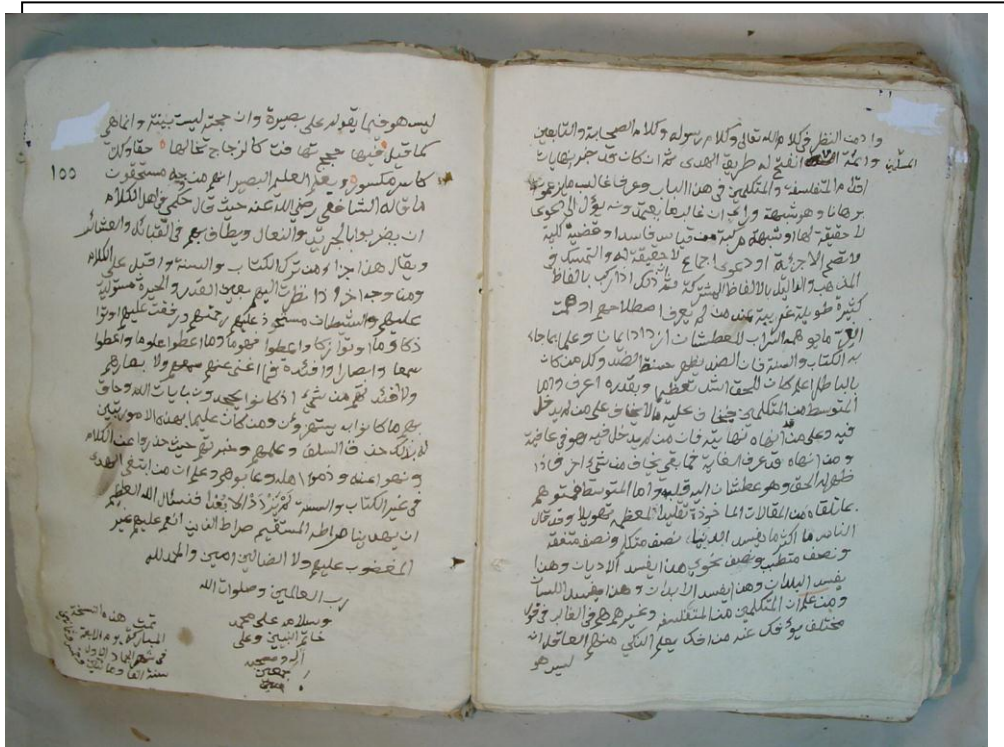 وادمن النظر في كلام الله تعالى وكلام رسوله وكلام الصحابة والتابعين
وائمة المسلمين انفتح له طريق الهدى ثم ان كان قد خبر نهايات
اقدام المتفلسفة والمتكلمين في هذا الباب وعرف غالب ما يزعمونه
برهانا وهو شبهة وراي ان غالب ما يعتمدونه يؤول الى دعوى
لا حقيقة لها او شبهة مركبة من قياس فاسد او قضية كلية
لا تصح الا جزئية او دعوى اجماع لا حقيقة له والتمسك في
المذهب والدليل بالالفاظ المشتركة ثم ان ذلك اذا ركب بالفاظ
كثيرة طويلة غريبة عند من لم يعرف اصطلاحهم اوهمت
الغر ما يوهمه السراب للعطشان ازداد ايمانا وعلما بما جاء
به الكتاب والسنة فان الضد يظهر حسنه الضد وكل من كان
بالباطل اعلم كان للحق اشد تعظيما وبقدره اعرف واما
المتوسط من المتكلمين فيخاف عليه ما لا يخاف على من لم يدخل
فيه وعلى من انهاه نهايته فان من لم يدخل فيه فهو في عافية
ومن انهاه قد عرف الغاية فما بقي يخاف من شيء اخر فاذا
ظهر له الحق وهو عطشان اليه قبله واما المتوسط فمتوهم
بما تلقاه من المقالات الماخوذة تقليدا لمعظمه تهويلا وقد قال
الناس ما اكثر ما يفسد الدنيا نصف متكلم ونصف متفقه
ونصف متطبب ونصف نحوي هذا يفسد الاديان وهذا
يفسد البلدان وهذا يفسد الابدان وهذا يفسد اللسان
ومن علم ان المتكلمين من المتفلسفة وغيرهم هم في الغالب في قول
مختلف يؤفك عنه من افك يعلم الذكي منهم العاقل ان
ليس هو
ليس هو فيما يقوله على بصيرة وان حجته ليست بينة وانما هي
كما قيل فيها حجج تهافت كالزجاج تخالها حقا وكل
كاسر مكسور ويعلم العليم البصير انهم من وجه مستحقون
١٥٥
ما قاله الشافعي رضي الله عنه حيث قال حكمي في اهل الكلام
ان يضربوا بالجريد والنعال ويطاف بهم في القبائل والعشائر
ويقال هذا جزاء من ترك الكتاب والسنة واقبل على الكلام
ومن وجه اخر اذا نظرت اليهم بعين القدر والحيرة مستولية
عليهم والشيطان مستحوذ عليهم رحمتهم ورفقت عليهم اوتوا
ذكاء وما اوتوا زكاء واعطوا فهوما وما اعطوا علوما واعطوا
سمعا وابصارا وافئدة فما اغنى عنهم سمعهم ولا ابصارهم
ولا افئدتهم من شيء اذ كانوا يجحدون بايات الله وحاق
بهم ما كانوا به يستهزؤن ومن كان عليما بهذه الامور تبين
له بذلك حذق السلف وعلمهم وخبرتهم حيث حذروا عن الكلام
ونهوا عنه وذموا اهله وعابوهم وعلم ان من ابتغى الهدى
في غير الكتاب والسنة لم يزدد الا بعدا فنسأل الله العظيم
ان يهدينا صراطه المستقيم صراط الذين انعم عليهم غير
المغضوب عليهم ولا الضالين امين والحمد لله
رب العالمين وصلوات الله
وسلامه على محمد
خاتم النبيين وعلى
اله وصحبه
اجمعين
امين
تمت هذه النسخة
المباركة يوم
في شهر جماد الاول
سنة الف